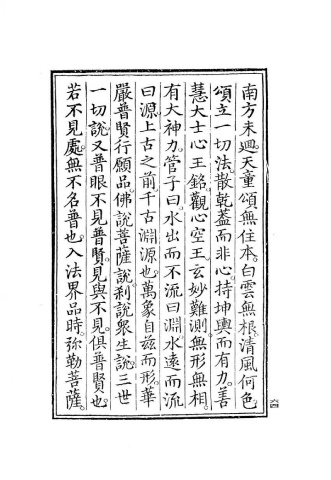 南方未廻。天童頌無住本。白雲無根清風何色
頌立一切法。散乾蓋而非心。持坤輿而有力。善
慧大士心王銘。觀心空王。玄妙難測。無形無相。
有大神力。管子曰水出而不流曰淵水遠而流
曰源。上古之前。千古淵源也。萬象自茲而形。華
嚴普賢行願品。佛說菩薩說。剎說衆生說。三世
一切說。又普眼不見普賢。見與不見。俱普賢也。
若不見處。無不名普也。入法界品時。弥勒菩薩。
六四